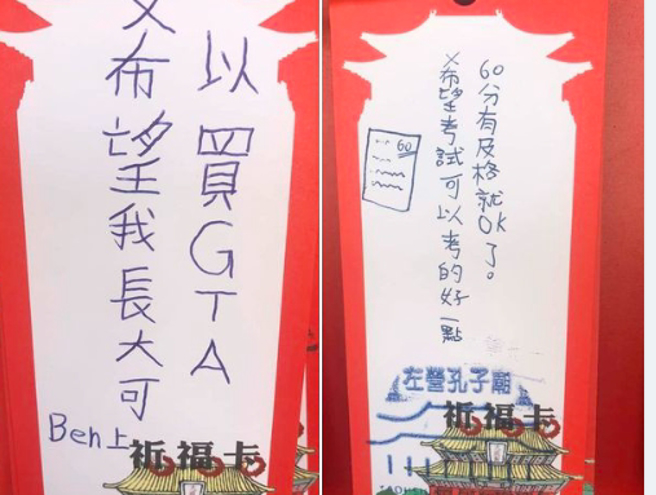 X希望我長大可
以買GTA
Ben上
祈福卡
X希望考試可以考的好一點
60分有及格就OK了。
60
左營孔子廟
祈福卡